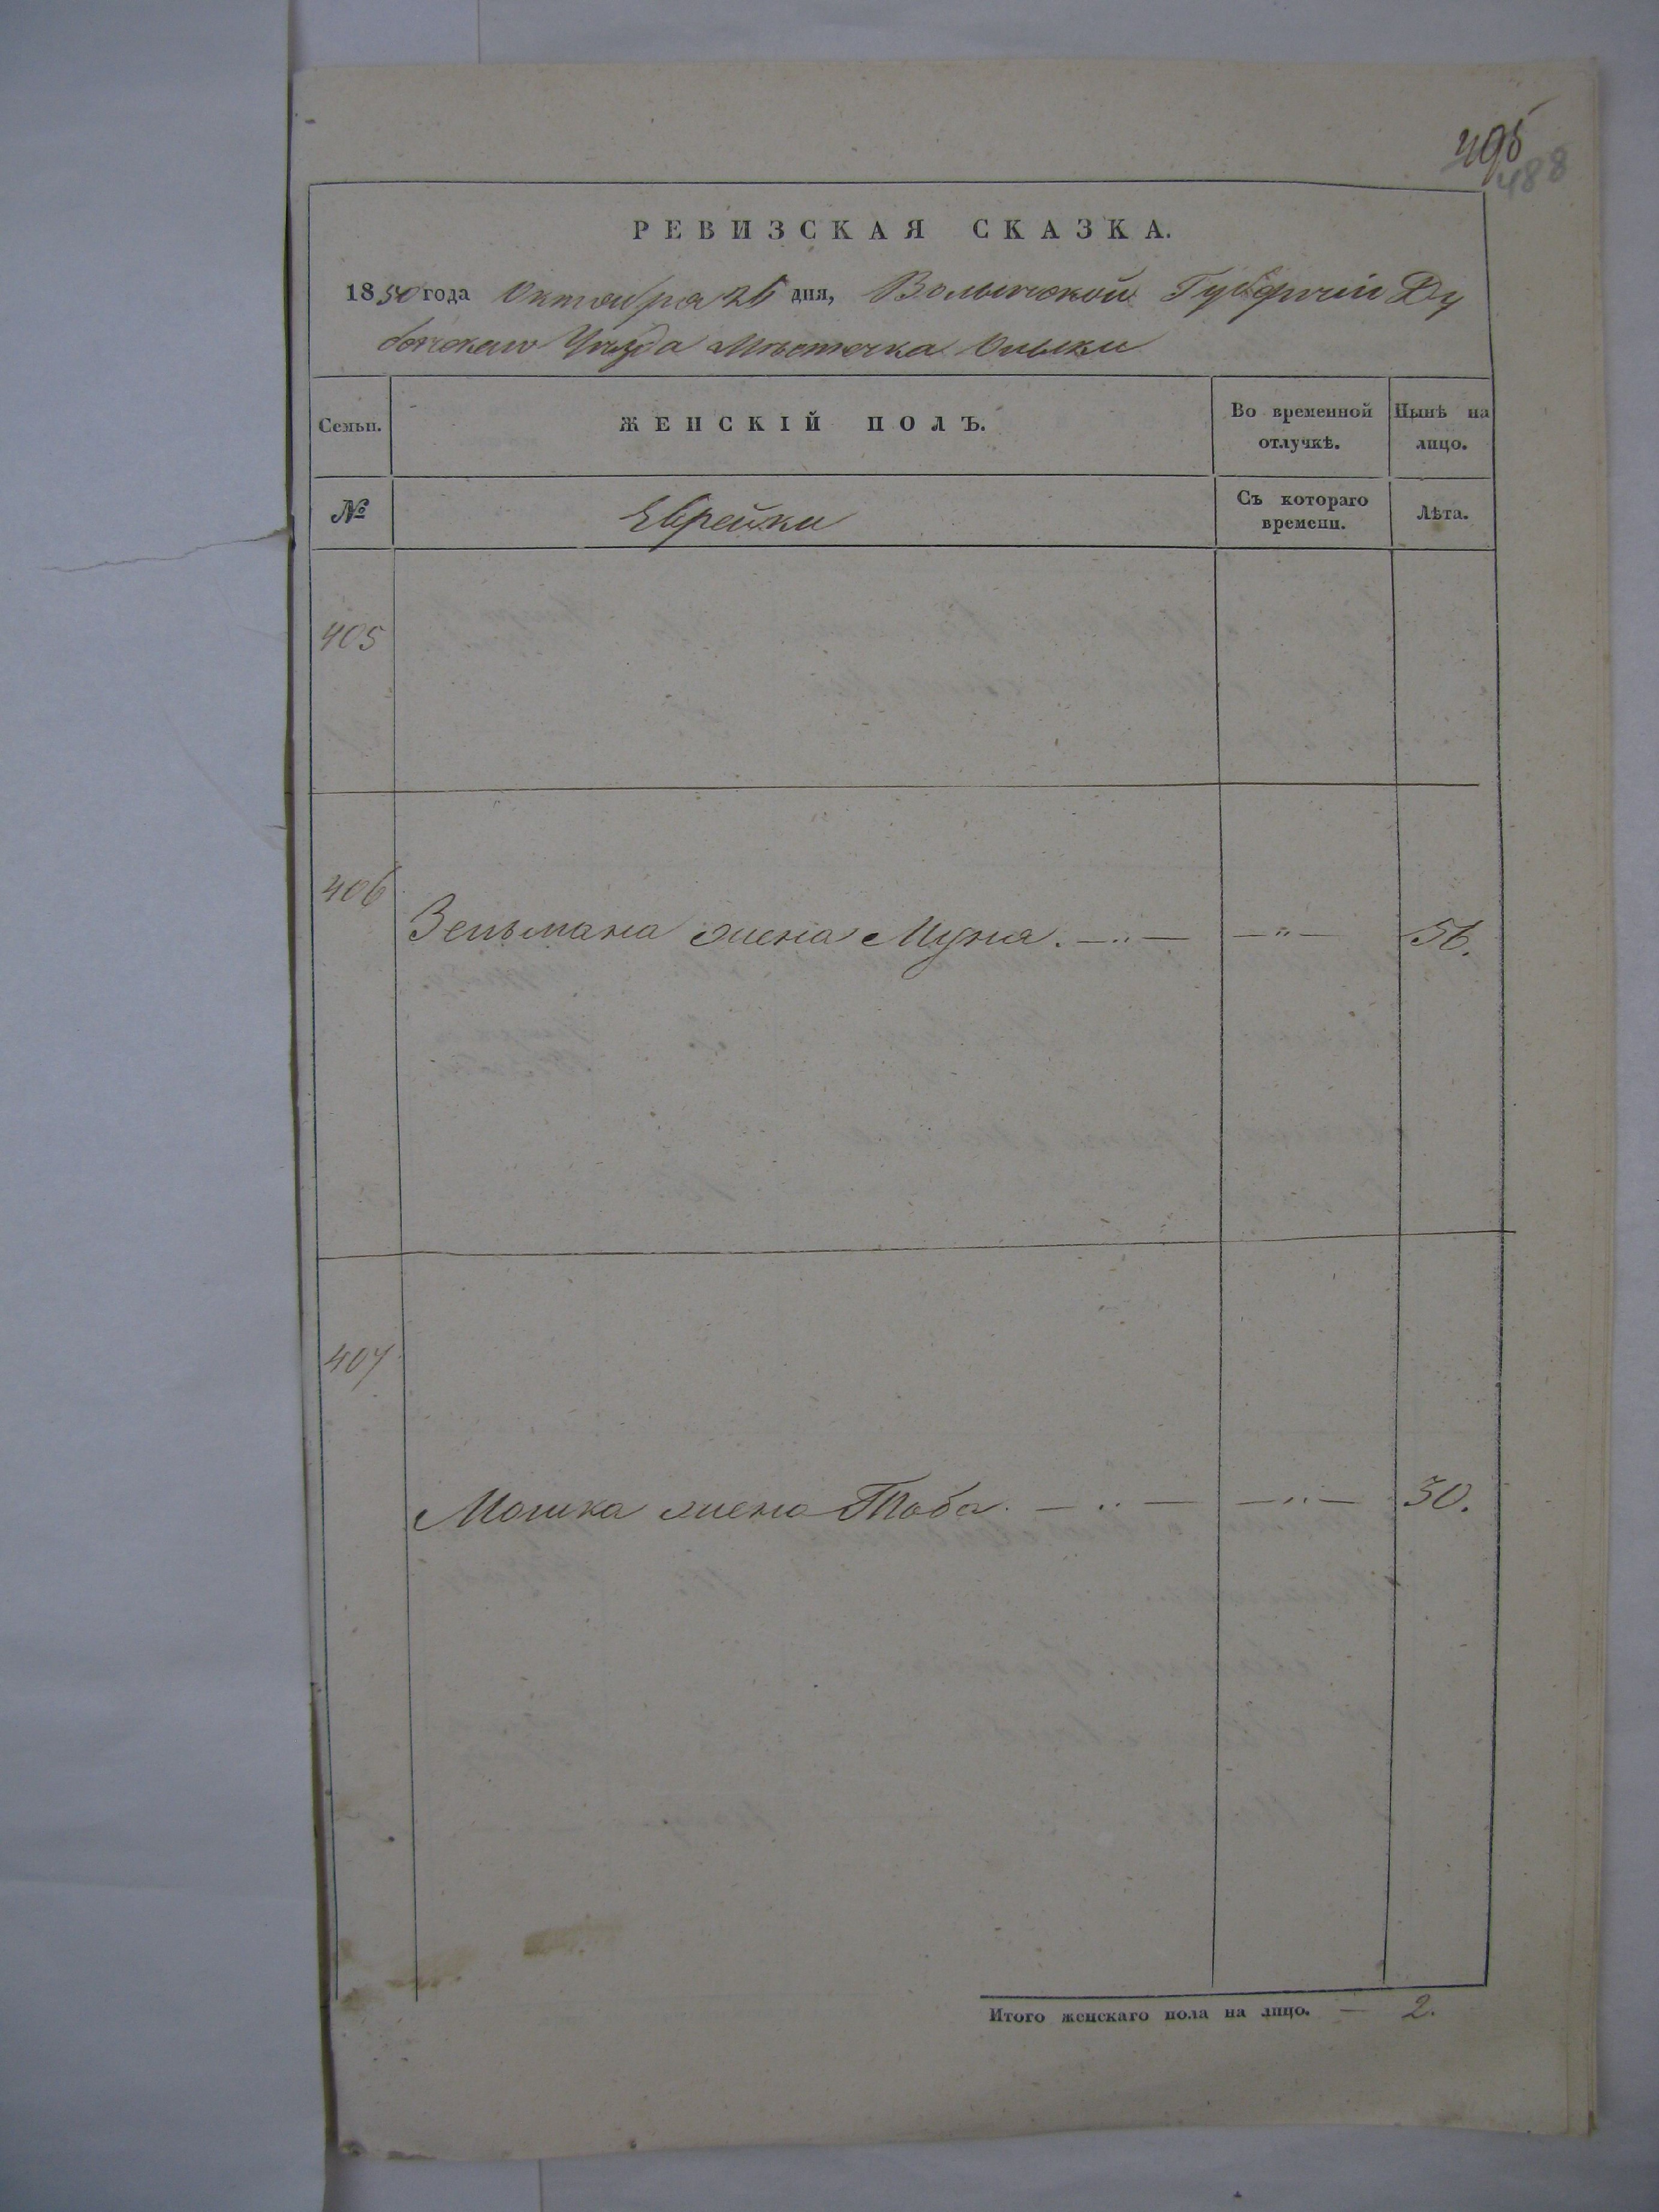 495
488
РЕВИЗСКАЯ СКАЗКА.
1850 года Октября 26 дня, Волынской Губерніи Ду
бенскаго Уѣзда Мѣстечка Олыки
Семьи. ЖЕНСКІЙ ПОЛЪ. Во временной отлучкѣ. Нынѣ на лицо.
№ Еврейки Съ котораго времени. Лѣта.
405
406
Зельмана жена Муня. —"— —"— 56.
407
Мошка жена Тоба. —"— —"— 30.
Итого женскаго пола на лицо. — 2.